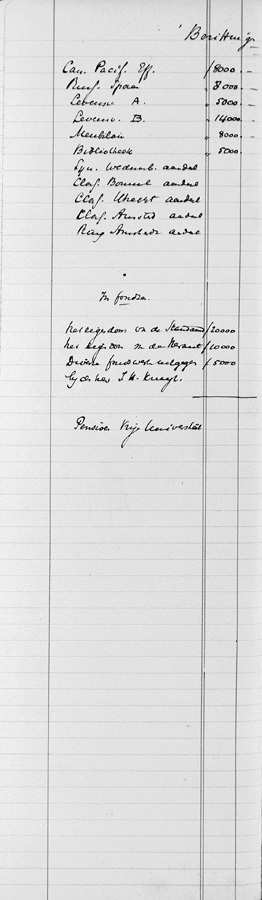 Bezittingen
Can. Pacif. Eff. f 8000.-
Ruyf. Spaar " 3000.-
Levensv. A. " 5000 -
Levensv. B. " 14000 -
Meubelair " 8000 -
Bibliotheek " 5000. -
aandeel
Clas. Bonnel aandeel
Clas. Utrecht aandeel
Clas. Amsterd aandeel
aandeel
In fondsen.
het eigendom v/d de Standaard f 20000
het eigendom v/d de Heraut f 10000
Diverse uitgegev f 5000
bij den heer J. H. Kruyt.
Pensioen Vrije Universiteit